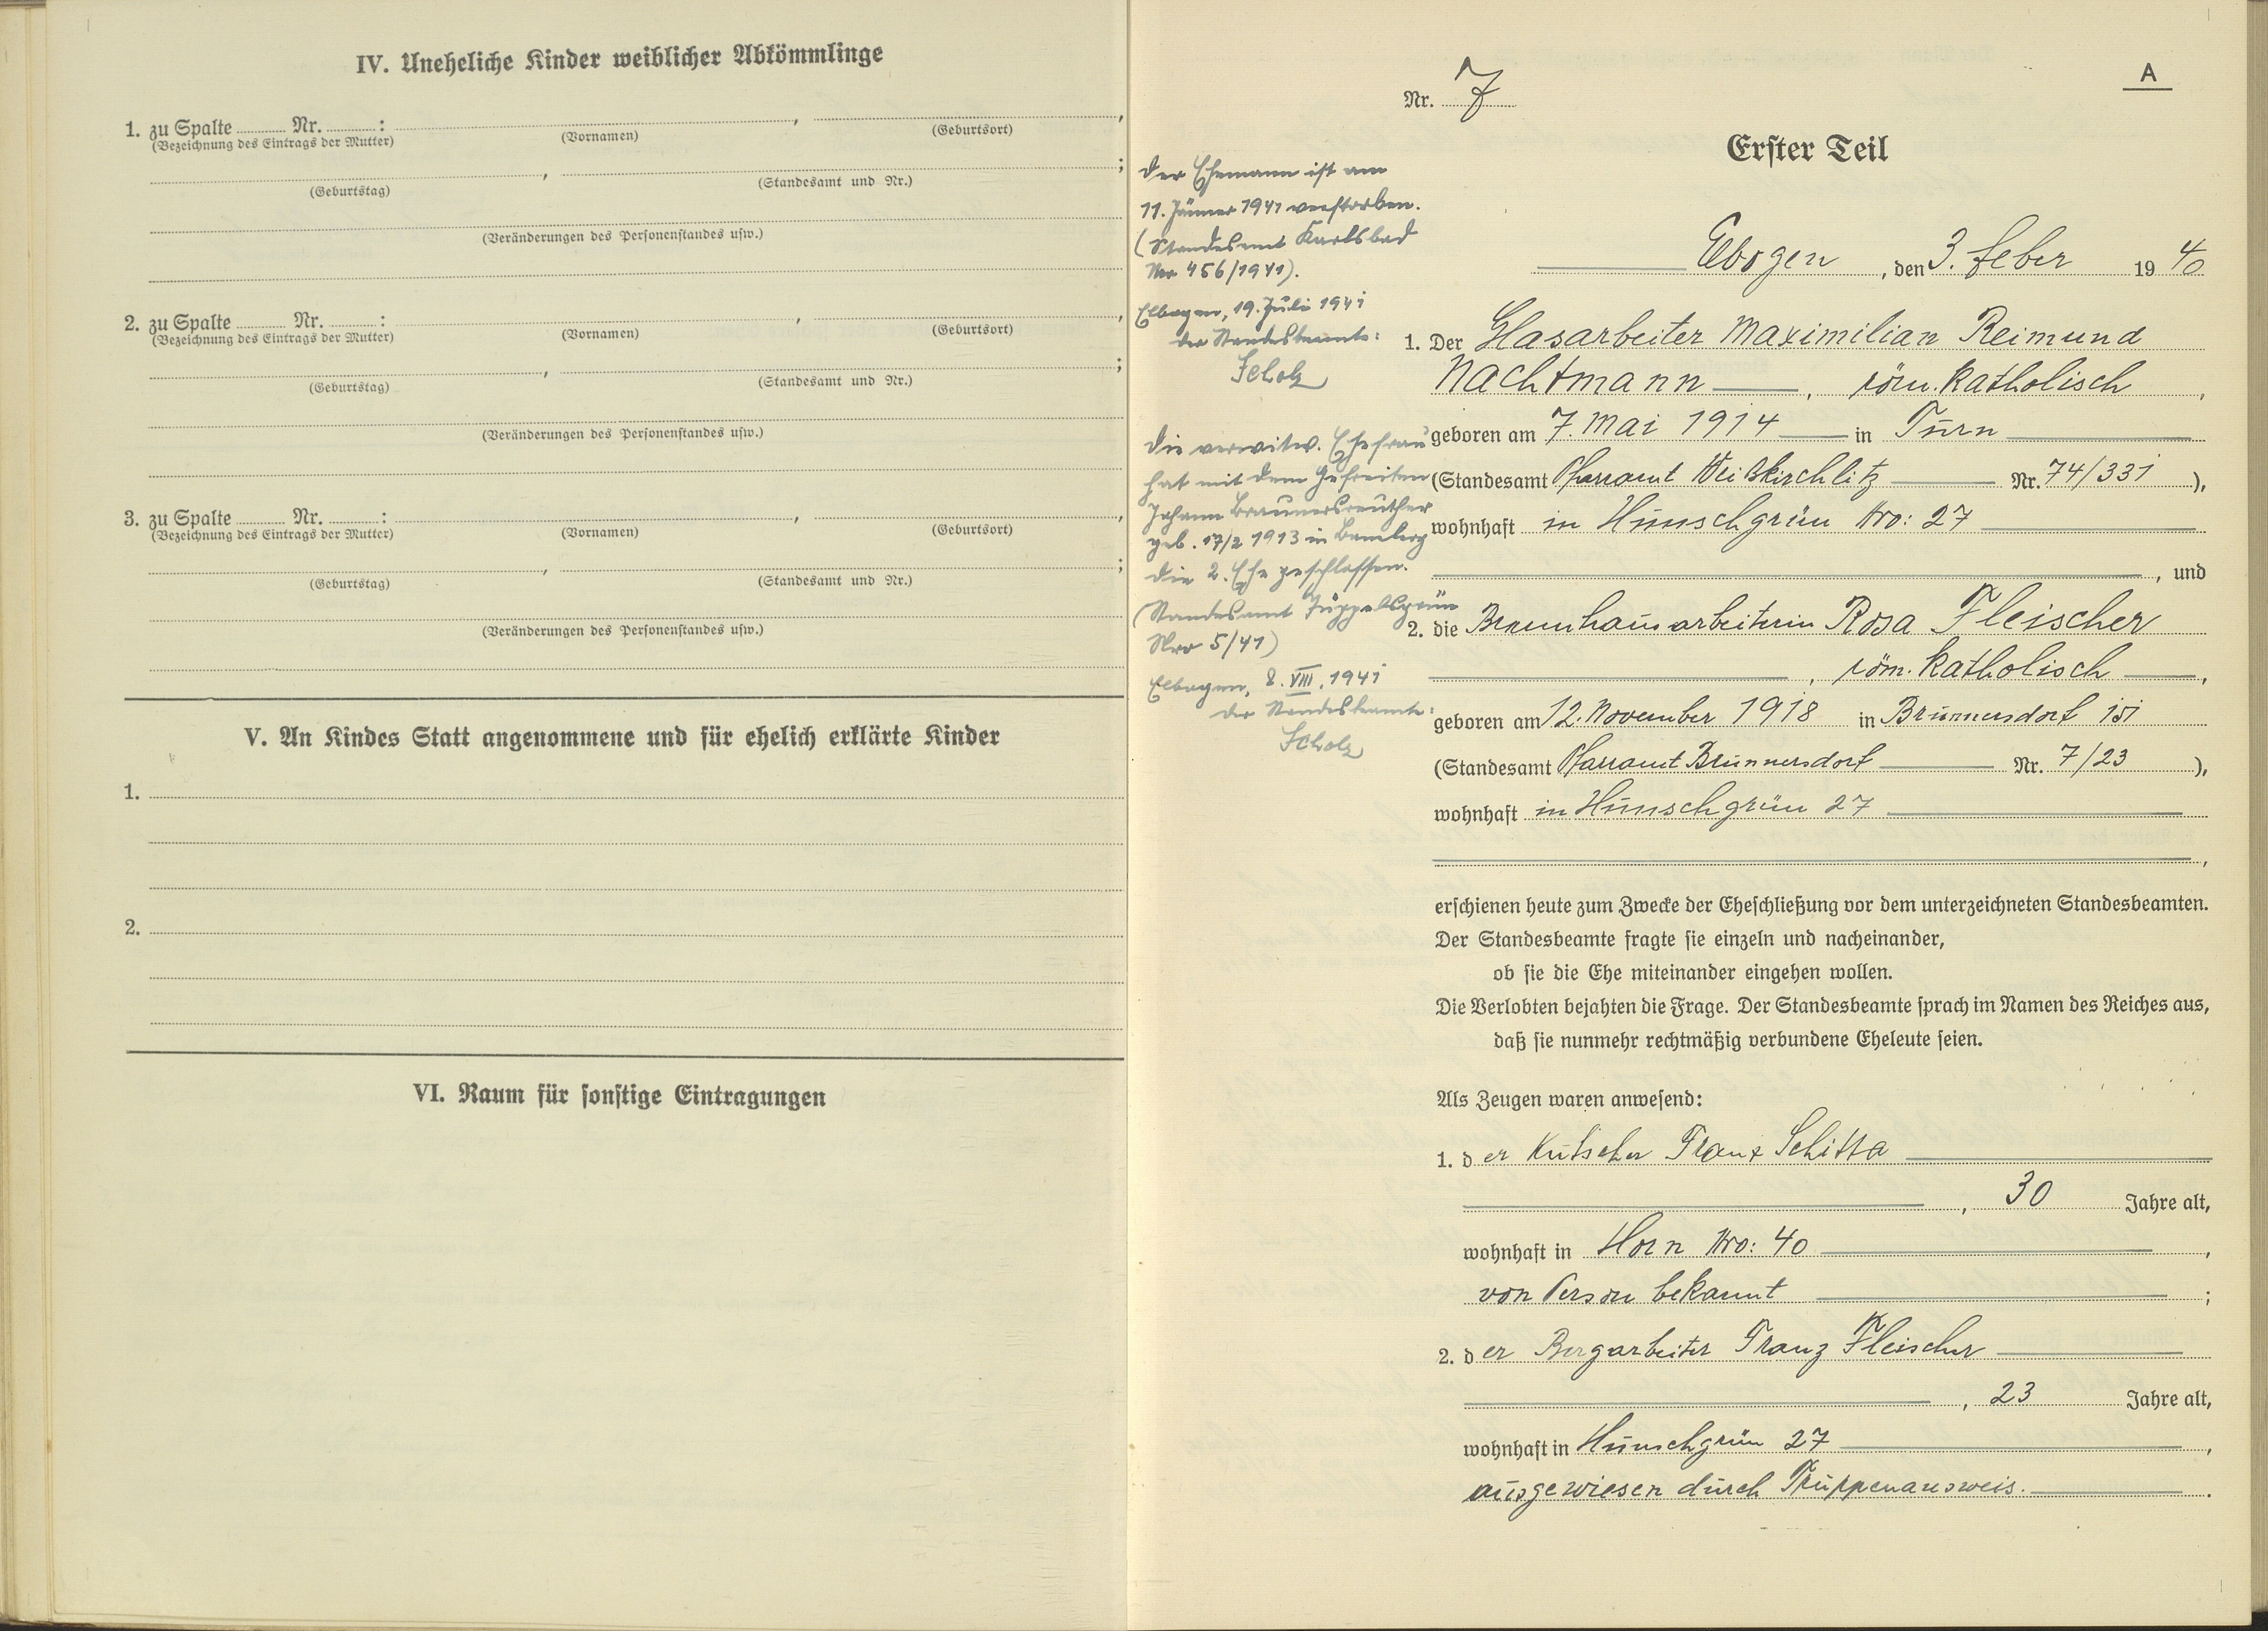 IV. Uneheliche Kinder weiblicher Abkömmlinge
1. zu Spalte ........ Nr. ........ : ........ , ........ ,
(Bezeichnung des Eintrags der Mutter) (Vornamen) (Geburtsort)
........ , ........ ;
(Geburtstag) (Standesamt und Nr.)
(Veränderungen des Personenstandes usw.)
2. zu Spalte ........ Nr. ........ : ........ , ........ ,
(Bezeichnung des Eintrags der Mutter) (Vornamen) (Geburtsort)
........ , ........ ;
(Geburtstag) (Standesamt und Nr.)
(Veränderungen des Personenstandes usw.)
3. zu Spalte ........ Nr. ........ : ........ , ........ ,
(Bezeichnung des Eintrags der Mutter) (Vornamen) (Geburtsort)
........ , ........ ;
(Geburtstag) (Standesamt und Nr.)
(Veränderungen des Personenstandes usw.)
V. An Kindes Statt angenommene und für ehelich erklärte Kinder
1.
2.
VI. Raum für sonstige Eintragungen
A
Nr. 7
Erster Teil
Der Ehemann ist am
11. Jänner 1941 verstorben.
(Standesamt Karlsbad
Nro 456/1941).
Elbogen, 19. Juli 1941
der Standesbeamte:
Scholz
Die verwitw. Ehefrau
hat mit dem Gefreiten
Johann Braunersreuther
geb. 17/2 1913 in Bamberg
die 2. Ehe geschlossen.
(Standesamt Züppelsgrün
Nro 5/41)
Elbogen, 8. VIII. 1941
der Standesbeamte:
Scholz
Elbogen, den 3. Feber 19 40
1. Der Glasarbeiter Maximilian Reimund
Nachtmann, röm. katholisch,
geboren am 7. Mai 1914 in Turn
(Standesamt Pfarramt Weißkirchlitz Nr. 74/331 ),
wohnhaft in Hunschgrün Nro: 27
, und
2. die Braunhausarbeiterin Rosa Fleischer
, röm. katholisch,
geboren am 12. November 1918 in Brunnersdorf 151
(Standesamt Pfarramt Brunnersdorf Nr. 7/23 ),
wohnhaft in Hunschgrün 27
,
erschienen heute zum Zwecke der Eheschließung vor dem unterzeichneten Standesbeamten.
Der Standesbeamte fragte sie einzeln und nacheinander,
ob sie die Ehe miteinander eingehen wollen.
Die Verlobten bejahten die Frage. Der Standesbeamte sprach im Namen des Reiches aus,
daß sie nunmehr rechtmäßig verbundene Eheleute seien.
Als Zeugen waren anwesend:
1. der Kutscher Franz Schitta
, 30 Jahre alt,
wohnhaft in Horn Nro: 40,
von Person bekannt;
2. der Bergarbeiter Franz Fleischer
, 23 Jahre alt,
wohnhaft in Hunschgrün 27,
ausgewiesen durch Truppenausweis.